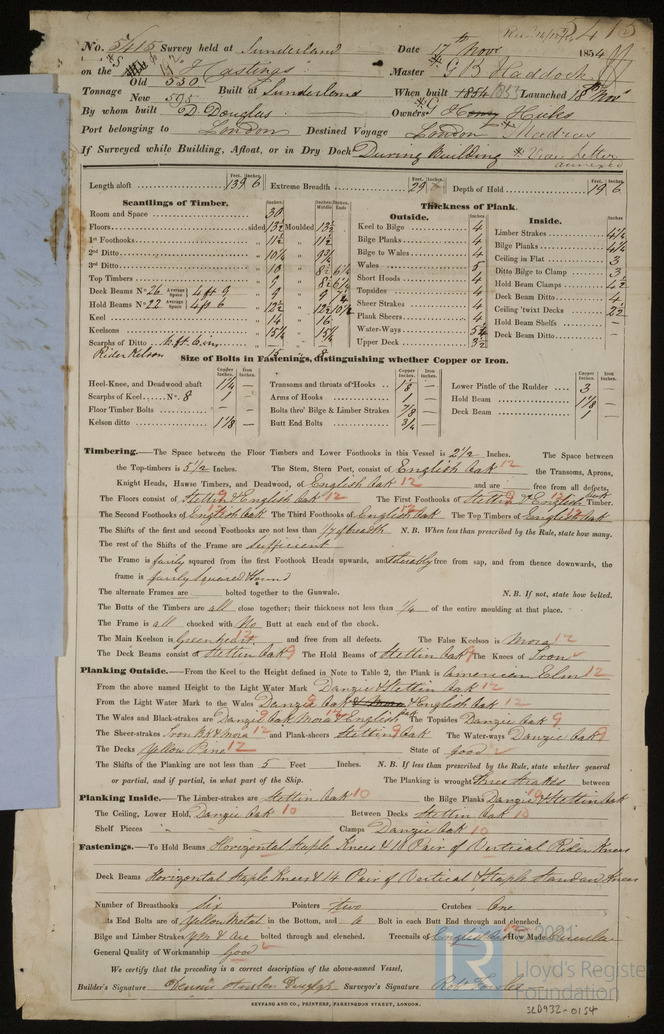 5415
No. 5415 Survey held at Sunderland Date 17th Novr 1854
on the Hastings Master G B Haddock
Tonnage Old 550 New 595 Built at Sunderland When built 1854 1853 Launched 18th Novr
By whom built D. Douglas Owners Henry Hicks
Port belonging to London Destined Voyage London Madras
If Surveyed while Building, Afloat, or in Dry Dock During Building * Vide letter annexed
Feet. Inches.
Length aloft 139 6 Extreme Breadth 29 Depth of Hold 19 6
Scantlings of Timber.
Room and Space 30
Floors sided 13½ Moulded 13½
1st Foothooks 11½ 11½
2nd Ditto 10¼ 9¾
3rd Ditto 10 8½ 6¼
Top Timbers 9 8½ 6¼
Deck Beams No 26 Average Space 4 ft 9 9 9 7¼
Hold Beams No 22 Average Space 4 ft 6 12½ 12½ 10½
Keel 14 16
Keelsons 15¼ 15¼
Scarphs of Ditto 6 ft. 6 in.
Rider Kelson 15 8
Thickness of Plank.
Outside.
Keel to Bilge 4
Bilge Planks 4
Bilge to Wales 4
Wales 5
Short Hoods 4
Topsides 4
Sheer Strakes 4
Plank Sheers 4
Water-Ways 5¼
Upper Deck 3½
Inside.
Limber Strakes 4¼
Bilge Planks 4¼
Ceiling in Flat 3
Ditto Bilge to Clamp 3
Hold Beam Clamps 4½
Deck Beam Ditto 4
Ceiling 'twixt Decks 2½
Hold Beam Shelfs —
Deck Beam Ditto —
Size of Bolts in Fastenings, distinguishing whether Copper or Iron.
Copper Inches. Iron Inches.
Heel-Knee, and Deadwood abaft 1¼ —
Scarphs of Keel No. 8 1 —
Floor Timber Bolts — —
Kelson ditto 1⅛ —
Transoms and throats of Hooks 1⅛ —
Arms of Hooks 1 —
Bolts thro' Bilge & Limber Strakes ⅞ —
Butt End Bolts ¾
Lower Pintle of the Rudder 3 —
Hold Beam 1⅛ —
Deck Beam 1 —
Timbering.—The Space between the Floor Timbers and Lower Foothooks in this Vessel is 2½ Inches. The Space between
the Top-timbers is 5½ Inches. The Stem, Stern Post, consist of English Oak 12 the Transoms, Aprons,
Knight Heads, Hawse Timbers, and Deadwood, of English Oak 12 and are free from all defects,
The Floors consist of Stettin 9 & English Oak 12 The First Foothooks of Stettin 9 & English Oak 12 Timber.
The Second Foothooks of English Oak 12 The Third Foothooks of English Oak 12 The Top Timbers of English Oak 12
The Shifts of the first and second Foothooks are not less than 1/7 of breadth N. B. When less than prescribed by the Rule, state how many.
The rest of the Shifts of the Frame are Sufficient
The Frame is fairly squared from the first Foothook Heads upwards, and totally free from sap, and from thence downwards, the
frame is fairly squared & sound
The alternate Frames are bolted together to the Gunwale. N. B. If not, state how bolted.
The Butts of the Timbers are all close together; their thickness not less than ¼ of the entire moulding at that place.
The Frame is all chocked with No Butt at each end of the chock.
The Main Keelson is Greenheart 12 and free from all defects. The False Keelson is Mora 12
The Deck Beams consist of Stettin Oak 9 The Hold Beams of Stettin Oak 9 The Knees of Iron
Planking Outside.—From the Keel to the Height defined in Note to Table 2, the Plank is American Elm 12
From the above named Height to the Light Water Mark Danzic & Stettin Oak 12
From the Light Water Mark to the Wales Danzic Oak & English Oak 12
The Wales and Black-strakes are Danzic 9 Oak Mora 12 & English Oak The Topsides Danzic Oak 9
The Sheer-strakes Iron Bk & Mora 12 and Plank-sheers Stettin Oak 9 The Water-ways Danzic Oak 9
The Decks Yellow Pine 12 State of good
The Shifts of the Planking are not less than 5 Feet Inches. N. B. If less than prescribed by the Rule, state whether general
or partial, and if partial, in what part of the Ship. The Planking is wrought three strakes between
Planking Inside.—The Limber-strakes are Stettin Oak 10 the Bilge Planks Danzic 10 & Stettin Oak
The Ceiling, Lower Hold, Danzic Oak 10 Between Decks Stettin Oak 10
Shelf Pieces Clamps Danzic Oak 10
Fastenings.—To Hold Beams Horizontal Staple Knees & 10 Pair of Vertical Rider Knees
Deck Beams Horizontal Staple Knees & 14 Pair of Vertical & Staple Standard Knees
Number of Breasthooks Six Pointers two Crutches One
Its End Bolts are of Yellow Metal in the Bottom, and A Bolt in each Butt End through and clenched.
Bilge and Limber Strakes YM & are bolted through and clenched. Treenails of English Oak 12 How Made Circular
General Quality of Workmanship Good
We certify that the preceding is a correct description of the above-named Vessel,
Builder's Signature Surveyor's Signature
SEYFANG AND CO., PRINTERS, FARRINGDON STREET, LONDON.
R
© 2021
Lloyd's Register
Foundation
SLD932-0154